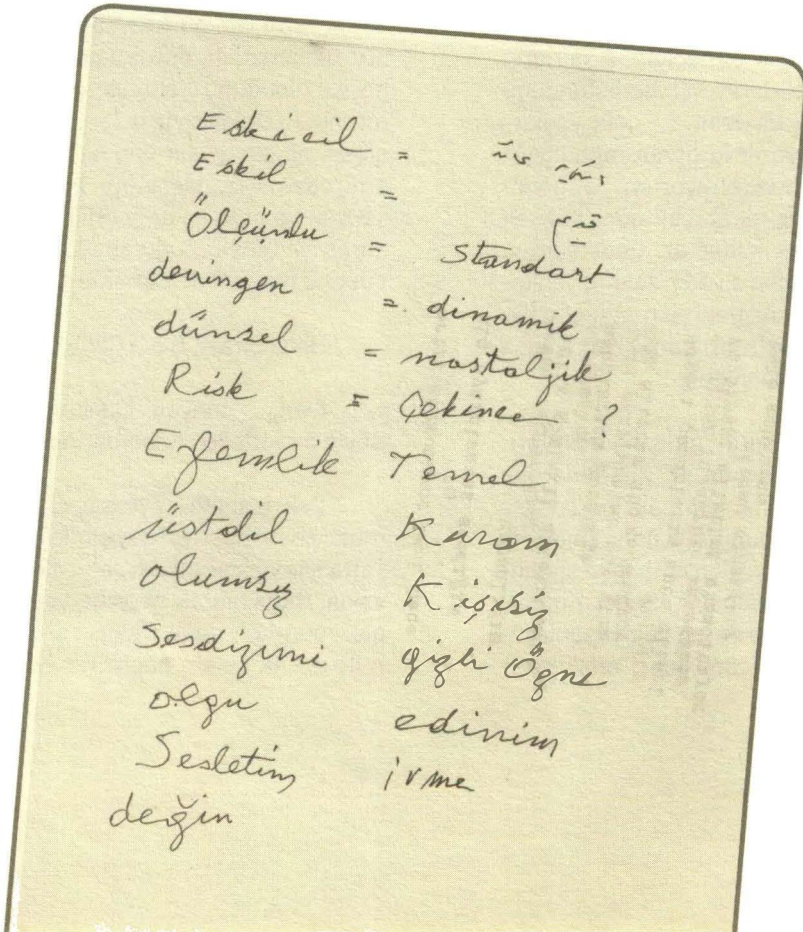 Eskicil =
Eskil = قديم
Ölçünlü = Standart
devingen = dinamik
dünsel = nostaljik
Risk = Çekince ?
Efemlik Temel
üstdil Kuram
Olumsuz Kişisiz
Sesdizimi gizli Özne
olgu edinim
Sesletim ivme
değin